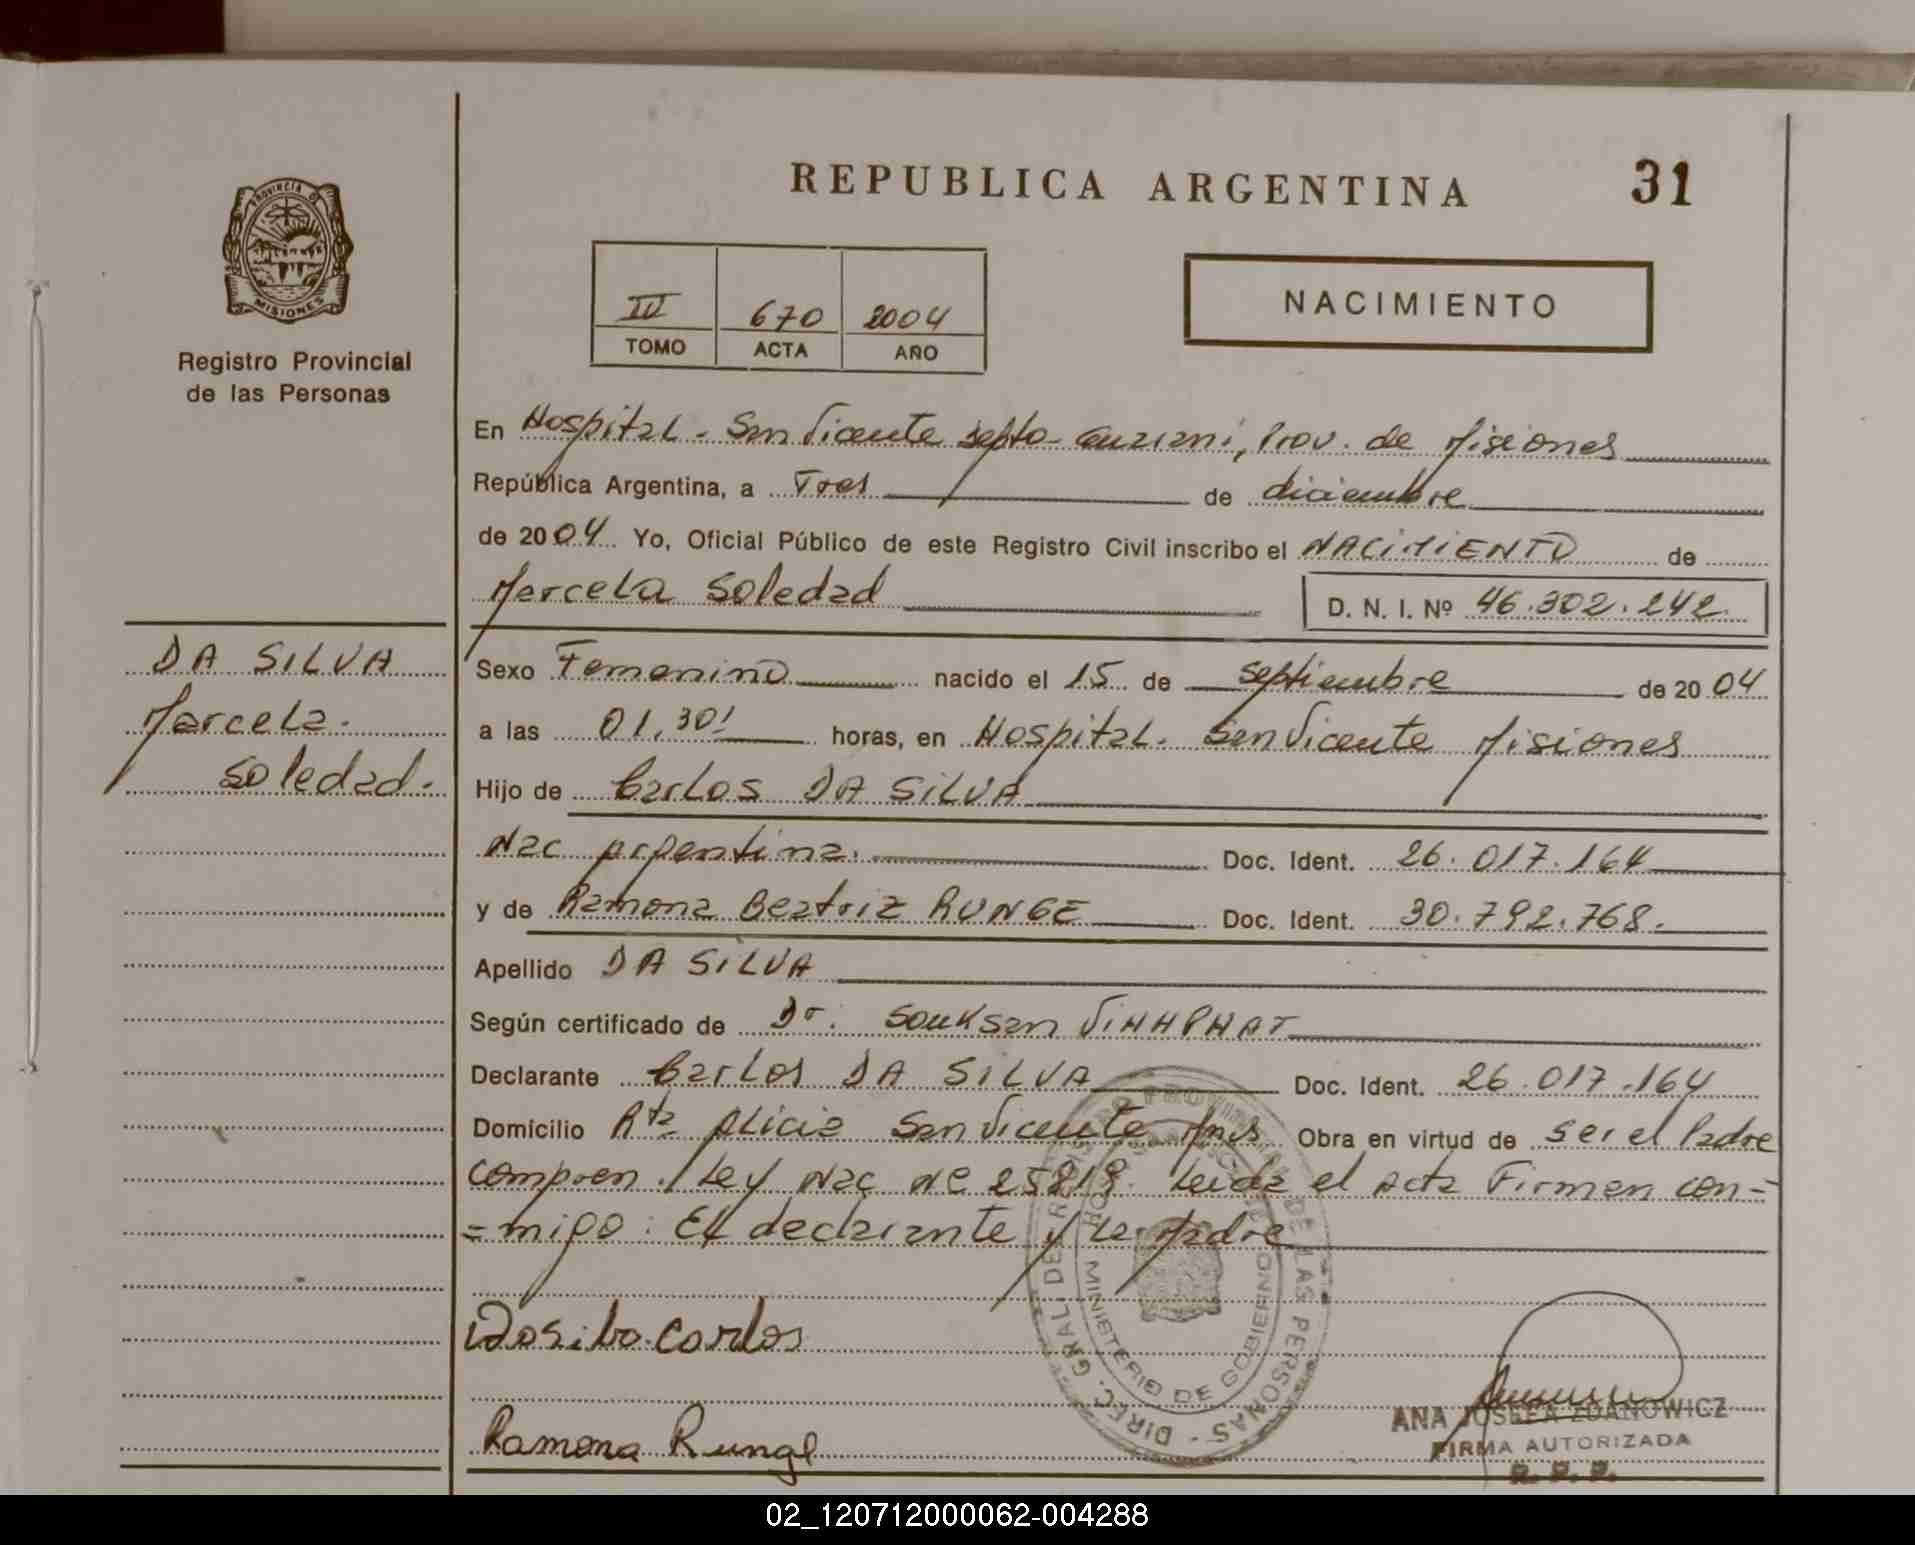 REPUBLICA ARGENTINA
31
PROVINCIA D
MISIONES
Registro Provincial
de las Personas
IV 670 2004
TOMO ACTA AÑO
NACIMIENTO
En Hospital - San Vicente Depto - Guarani, Prov. de Misiones
República Argentina, a Tres de diciembre
de 2004 Yo, Oficial Público de este Registro Civil inscribo el NACIMIENTO de
Marcela Soledad
D. N. I. Nº 46.302.242.
DA SILVA
Marcela.
Soledad.
Sexo Femenino nacido el 15 de Septiembre de 2004
a las 01,30' horas, en Hospital. San Vicente Misiones
Hijo de Carlos DA SILVA
Nac Argentina. Doc. Ident. 26.017.164
y de Ramona Beatriz RUNGE Doc. Ident. 30.792.768.
Apellido DA SILVA
Según certificado de Dr. Souksan
Declarante Carlos DA SILVA Doc. Ident. 26.017.164
Domicilio Rta Alicia San Vicente Mnes Obra en virtud de ser el Padre
Compren. Ley Nac Nº 25819. Leida el acta Firman con=
=migo: El declarante y la Madre
Carlos
Ramona Runge
DIREC. GRAL. DEL REGISTRO PROVINCIAL DE LAS PERSONAS -
MINISTERIO DE GOBIERNO
ANA JOSEFA ZDANOWICZ
FIRMA AUTORIZADA
R. P. P.
02_120712000062-004288